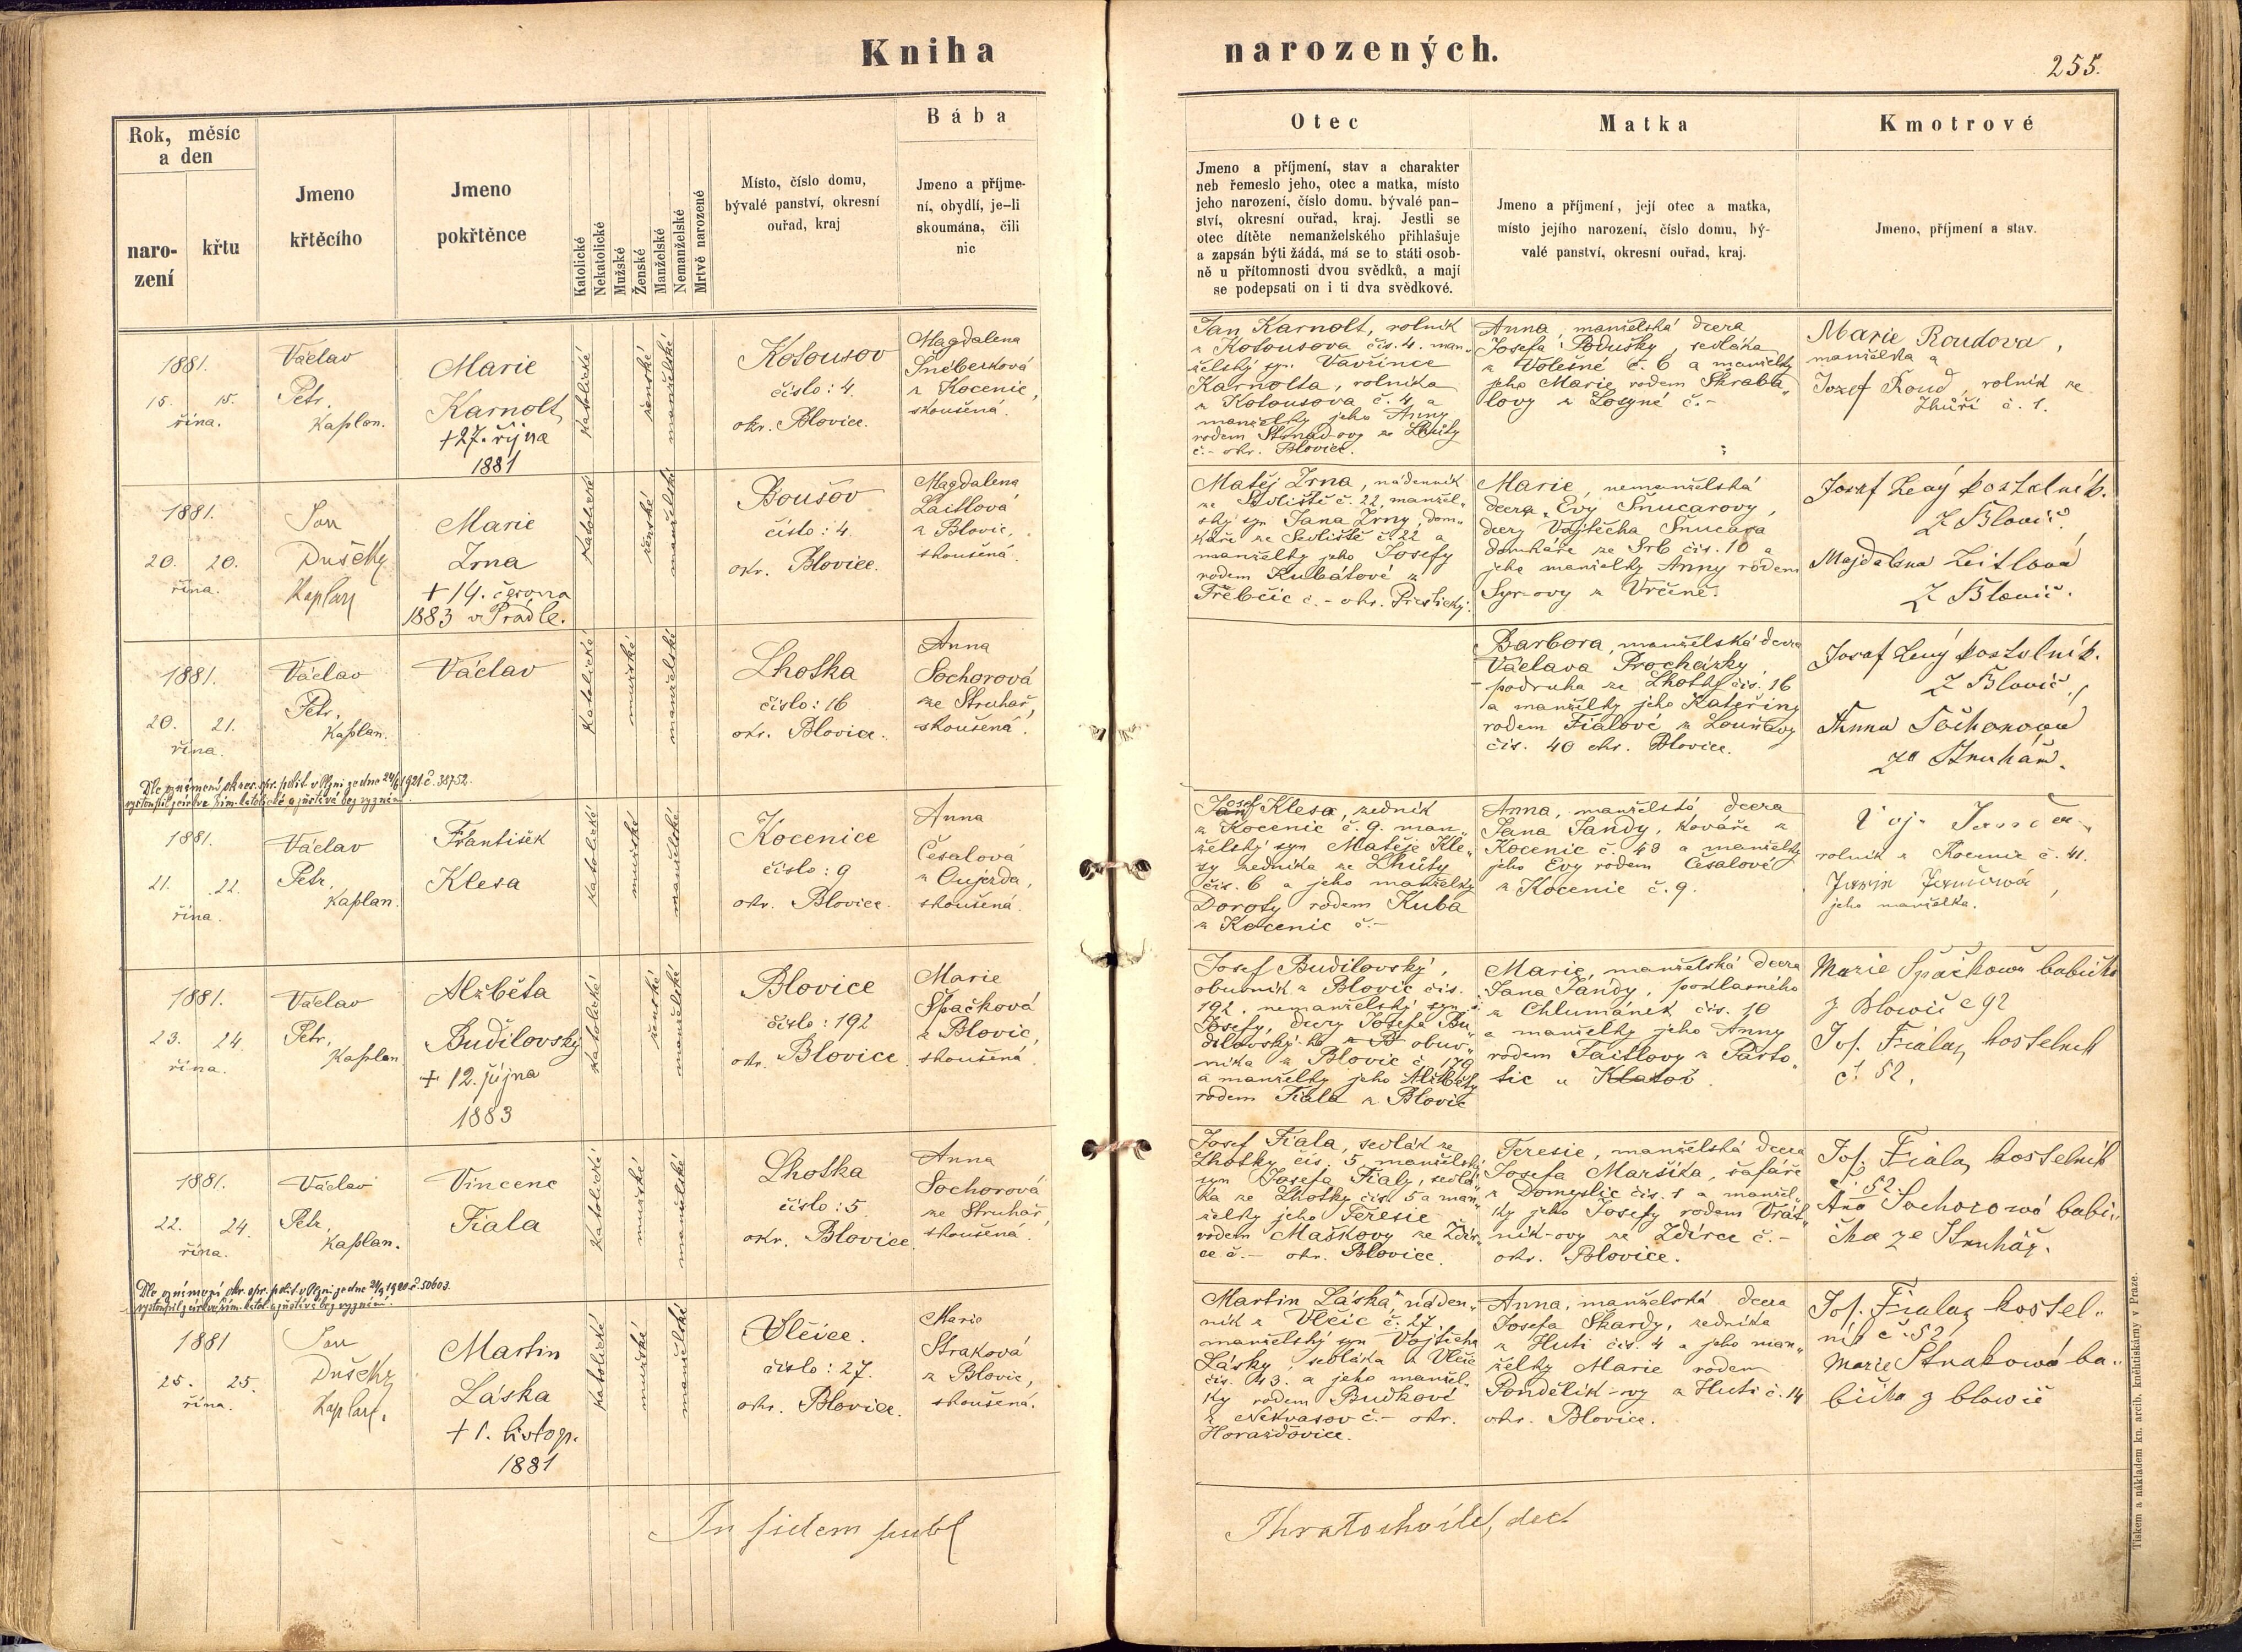 Kniha narozených.
255.
Rok, měsíc
a den
naro-
zení
křtu
Jmeno
křtěcího
Jmeno
pokřtěnce
Katolické
Nekatolické
Mužské
Ženské
Manželské
Nemanželské
Mrtvě narozené
Místo, číslo domu,
bývalé panství, okresní
ouřad, kraj
Bába
Jmeno a příjme-
ní, obydlí, je-li
skoumána, čili
nic
Otec
Jmeno a příjmení, stav a charakter
neb řemeslo jeho, otec a matka, místo
jeho narození, číslo domu. bývalé pan-
ství, okresní ouřad, kraj. Jestli se
otec dítěte nemanželského přihlašuje
a zapsán býti žádá, má se to státi osob-
ně u přítomnosti dvou svědků, a mají
se podepsati on i ti dva svědkové.
Matka
Jmeno a příjmení, její otec a matka,
místo jejího narození, číslo domu, bý-
valé panství, okresní ouřad, kraj.
Kmotrové
Jmeno, příjmení a stav.
1881.
15. 15.
října.
Václav
Petr,
Kaplan.
Marie
Karnolt
+27. října
1881
katolické
ženské
manželské
Kotousov
číslo: 4.
okr. Blovice.
Magdalena
Šnéberková
z Kocenic,
skoušená.
Jan Karnolt, rolník
z Kotousova čís. 4. man-
želský syn Vavřince
Karnolta, rolníka
z Kotousova č. 4 a
manželky jeho Anny
rodem Strnad-ovy ze Lhůty
č.- okr. Blovice.
Anna, manželská dcera
Josefa Podušky, sedláka
z Volešné č. 6 a manželky
jeho Marie rodem Škrabla-
lovy z Losyné č.-
Marie Roudova,
manželka a
Jozef Roud, rolník ze
Zhůří č. 1.
1881.
20. 20.
října.
Jan
Dušek
Kaplan
Marie
Zrna
+ 14. června
1883 v Prádle.
katolické
ženské
manželské
Boušov
číslo: 4.
okr. Blovice.
Magdalena
Laitlová
z Blovic,
skoušená
Matěj Zrna, nádenník
ze Sedliště č. 22, manžel-
ský syn Jana Zrny, dom-
káře ze Sedliště č. 22 a
manželky jeho Josefy
rodem Kubátové z
Třebčic č.- okr. Přestický.
Marie, nemanželská
dcera Evy Šnucarovy,
dcery Vojtěcha Šnucara
domkáře ze Srb čís. 10 a
jeho manželky Anny rodem
Syr-ovy z Vrčené.
Josef Lený kostelník.
Z Blovic.
Majdalena Leitlová
Z Blovic.
1881.
20. 21.
října.
Václav
Petr,
Kaplan.
Václav
katolické
mužské
manželské
Lhotka
číslo: 16
okr. Blovice.
Anna
Sochorová
ze Struhař,
skoušená.
Barbora, manželská dcera
Václava Procházky,
podruha ze Lhotky čís. 16
a manželky jeho Kateřiny
rodem Fialové z Louňavy
čís. 40 okr. Blovice.
Josef Lený kostelník.
Z Blovic,
Anna Sochorová
ze Struhař.
Dle oznámení okres. spr. polit. v Plzni ze dne 24/6 1921 č. 38752.
vystoupil z církve řím. katolické a zůstává bez vyznání.
1881.
21. 22.
října.
Václav
Petr,
Kaplan.
František
Klesa
katolické
mužské
manželské
Kocenice
číslo: 9
okr. Blovice.
Anna
Česalová
z Oujezda,
skoušená.
Josef Klesa, zedník
z Kocenic č. 9. man-
želský syn Matěje Kle-
sy zedníka ze Lhůty
čís. 6 a jeho manželky
Doroty rodem Kuba
z Kocenic č.-
Anna, manželská dcera
Jana Jandy, kováře z
Kocenic č. 43 a manželky
jeho Evy rodem Česalové
z Kocenic č. 9.
rolník z Kocenic č. 41.
jeho manželka.
1881.
23. 24
října.
Václav
Petr,
Kaplan
Alžběta
Budilovský
+ 12. října
1883
katolické
ženské
manželské
Blovice
číslo: 192
okr. Blovice.
Marie
Špačková
z Blovic,
skoušená
Josef Budilovský,
obuvník z Blovic čís.
192, nemanželský syn
Josefy, dcery Josefa Bu-
dilovský-ho z B obuv-
níka z Blovic č. 179
a manželky jeho Alžběty
rodem Fiala z Blovic
Marie, manželská dcera
Jana Jandy, podlasného
z Chlumánek čís. 10
a manželky jeho Anny
rodem Taitlovy z Pařo-
tic u Klatov.
Marie Špačková babička
z Blovic č 92
Jos. Fiala, kostelník
č. 52.
1881.
22. 24.
října.
Václav
Petr,
Kaplan.
Vincenc
Fiala
katolické
mužské
manželské
Lhotka
číslo: 5.
okr. Blovice.
Anna
Sochorová
ze Struhař,
skoušená.
Josef Fiala, sedlák ze
Lhotky čís. 5, manželský
syn Josefa Fialy, sedlá-
ka ze Lhotky čís. 5 a man-
želky jeho Teresie
rodem Maškovy ze Ždír-
ce č.- okr. Blovice.
Teresie, manželská dcera
Josefa Maršíka, šafáře
z Domyslic čís. 1 a manžel-
ky jeho Josefy rodem Vrát-
ník-ovy ze Ždírce č.-
okr. Blovice.
Jos. Fiala, kostelník
č. 52.
Ana Sochorowá babi-
čka ze Struhář.
Dle oznámení okr. spr. polit. v Plzni ze dne 21/9 1920 č. 50603.
vystoupil z církve řím. katol. a zůstává bez vyznání.
1881
25. 25.
října.
Jan
Dušek
Kaplan.
Martin
Láska
+ 1. listop.
1881
katolické
mužské
manželské
Vlčice.
číslo: 27.
okr. Blovice.
Marie
Straková
z Blovic,
skoušená.
Martin Láska, náden-
ník z Vlčic č. 27.
manželský syn Vojtěcha
Lásky, sedláka z Vlčic
čís. 43. a jeho manžel-
ky rodem Budkové
z Nekvasov č.- okr.
Horažďovice.
Anna, manželská dcera
Josefa Škardy, zedníka
z Huti čís. 4 a jeho man-
želky Marie rodem
Pondělík-ovy z Huti č. 14
okr. Blovice.
Jos. Fiala, kostel-
ník č. 52
Marie Strakowá ba-
bička z blowic
In fidem publ
Tiskem a nákladem kn. arcib. kněhtiskárny v Praze.